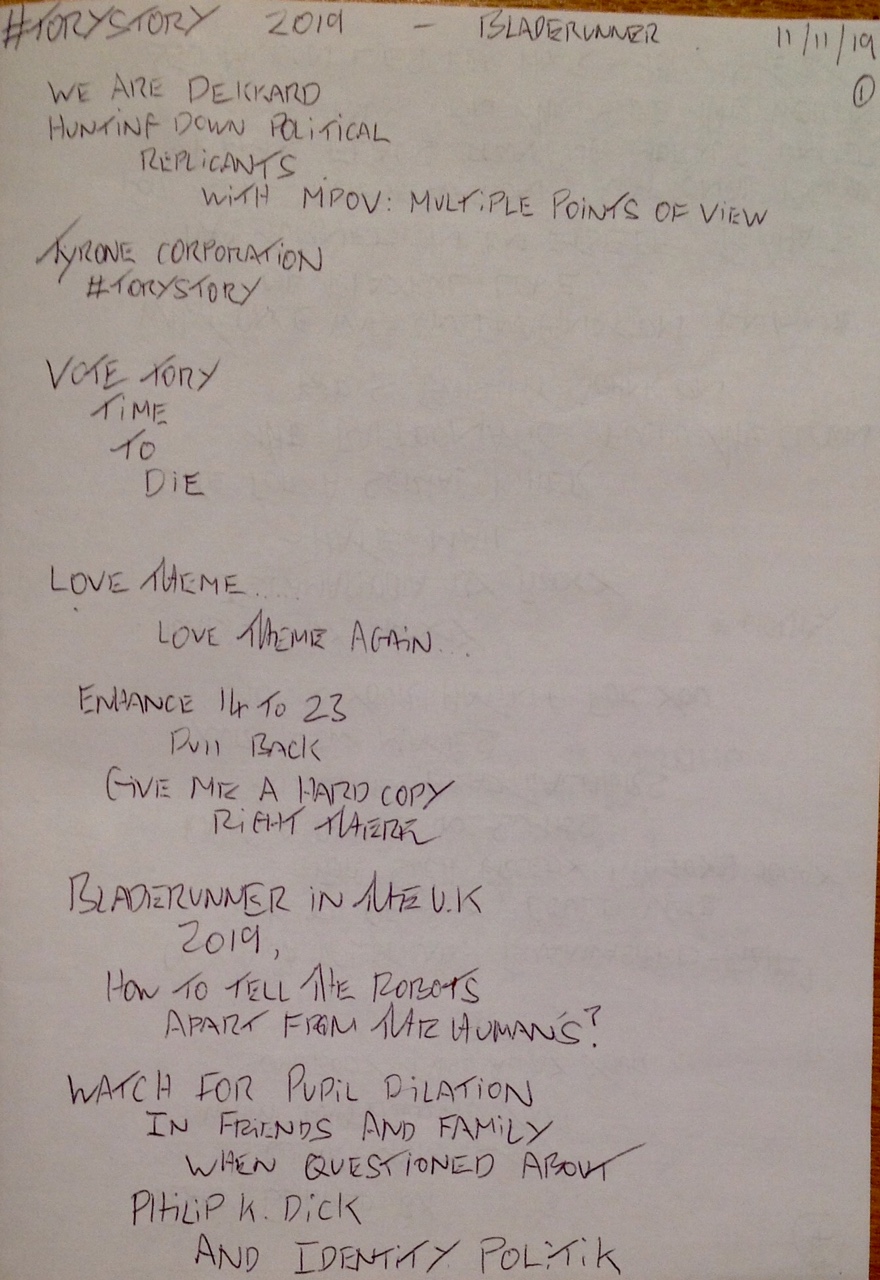 #TORYSTORY 2019 - BLADERUNNER 11/11/19
①
WE ARE DEKKARD
HUNTING DOWN POLITICAL
REPLICANTS
WITH MPOV: MULTIPLE POINTS OF VIEW
TYRONE CORPORATION
#TORYSTORY
VOTE TORY
TIME
TO
DIE
LOVE THEME.....
LOVE THEME AGAIN...
ENHANCE 14 TO 23
PULL BACK
GIVE ME A HARD COPY
RIGHT THERE
BLADERUNNER IN THE U.K
2019,
HOW TO TELL THE ROBOTS
APART FROM THE HUMAN'S?
WATCH FOR PUPIL DILATION
IN FRIENDS AND FAMILY
WHEN QUESTIONED ABOUT
PHILIP K. DICK
AND IDENTITY POLITIK